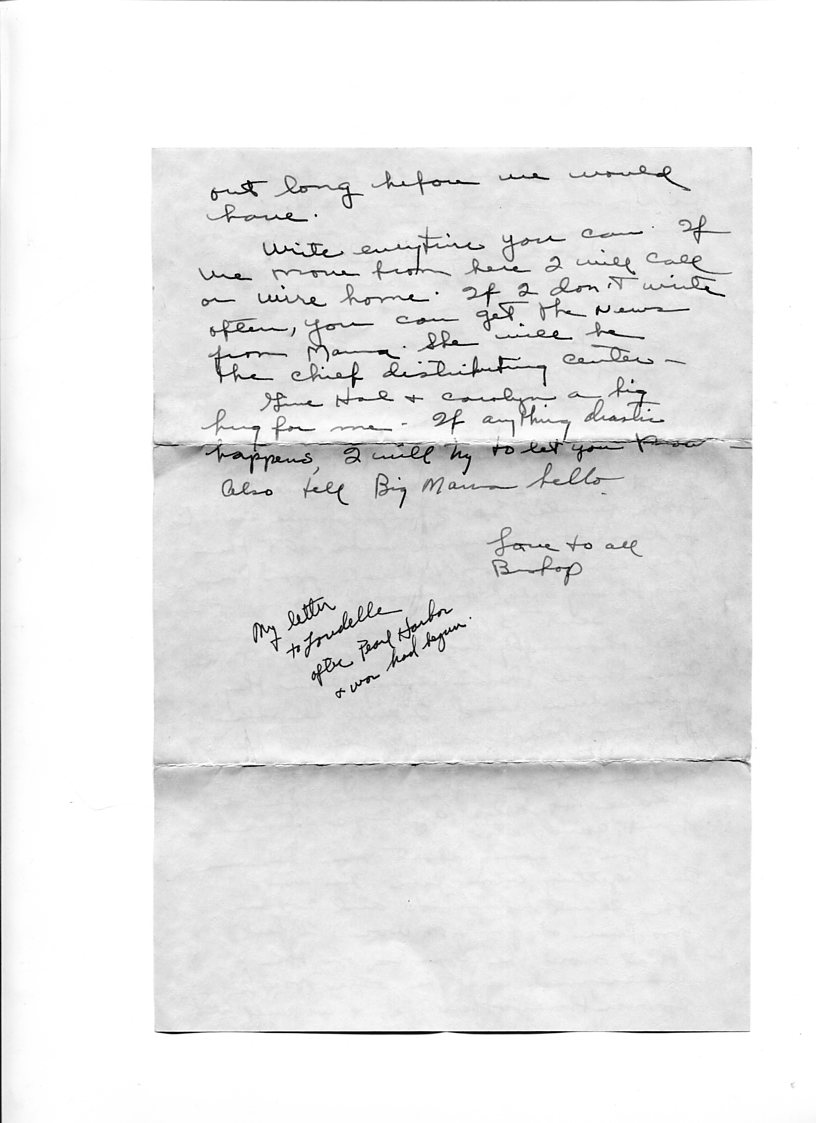 out long before we would
have.
Write everytime you can. If
we move from here I will call
or wire home. If I don't write
often, you can get the news
from Mama. She will be
the chief distributing center –
Give Hal + Carolyn a big
hug for me – If anything drastic
happens, I will try to let you know –
Also tell Big Mama hello.
Love to all
Bishop
My letter
to Loudelle
after Pearl Harbor
& war had begun.